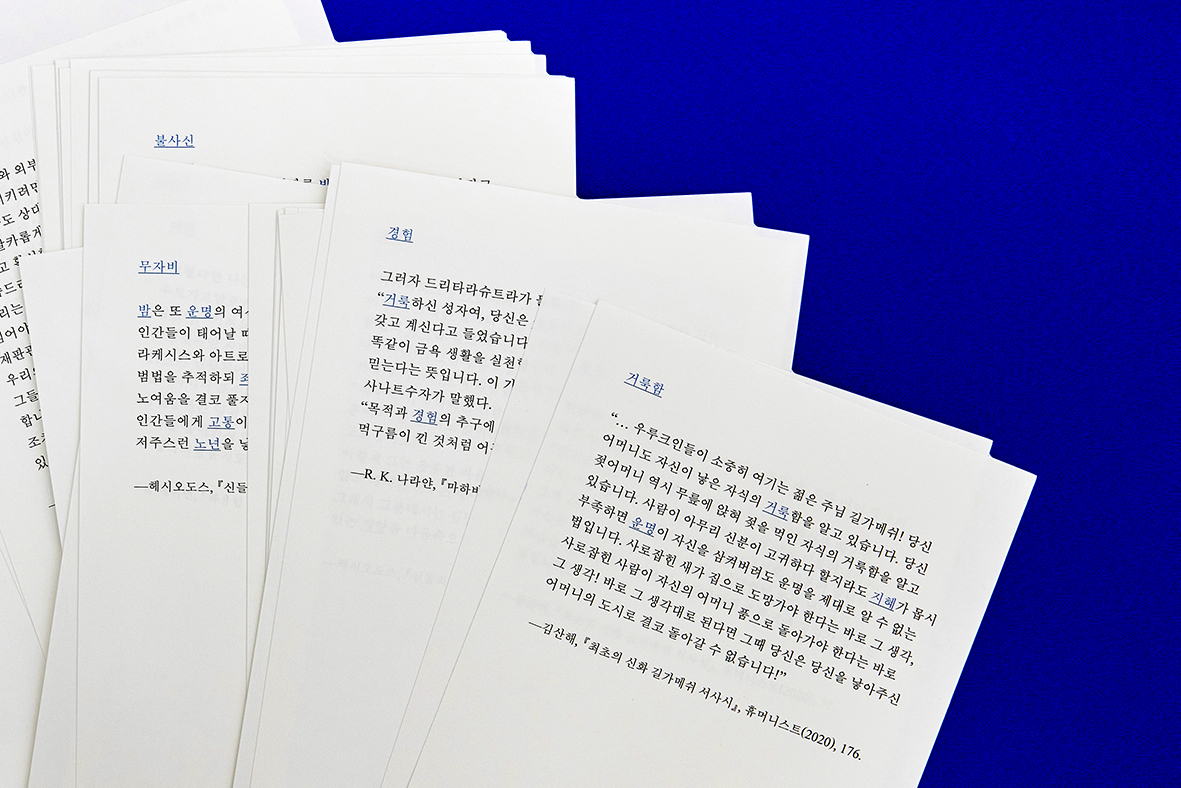 와 외부
키려면
도 상대
날카롭게
리는
우리
그들
합니
조
있
불사신
무자비
밤은 또 운명의 여
인간들이 태어날 때
라케시스와 아트로
범법을 추적하되 죄
노여움을 결코 풀지
인간들에게 고통이
저주스런 노년을 낳
—헤시오도스, 『신들
경험
그러자 드리타라슈트라가
“거룩하신 성자여, 당신은
갖고 계신다고 들었습니다
똑같이 금욕 생활을 실천
믿는다는 뜻입니다. 이 기
사나트수자가 말했다.
“목적과 경험의 추구에
먹구름이 낀 것처럼 어
—R. K. 나라얀, 『마하바
거룩함
“… 우루크인들이 소중히 여기는 젊은 주님 길가메쉬! 당신
어머니도 자신이 낳은 자식의 거룩함을 알고 있습니다. 당신
젖어머니 역시 무릎에 앉혀 젖을 먹인 자식의 거룩함을 알고
있습니다. 사람이 아무리 신분이 고귀하다 할지라도 지혜가 몹시
부족하면 운명이 자신을 삼켜버려도 운명을 제대로 알 수 없는
법입니다. 사로잡힌 새가 집으로 도망가야 한다는 바로 그 생각,
사로잡힌 사람이 자신의 어머니 품으로 돌아가야 한다는 바로
그 생각! 바로 그 생각대로 된다면 그때 당신은 당신을 낳아주신
어머니의 도시로 결코 돌아갈 수 없습니다!”
—김산해, 『최초의 신화 길가메쉬 서사시』, 휴머니스트(2020), 176.